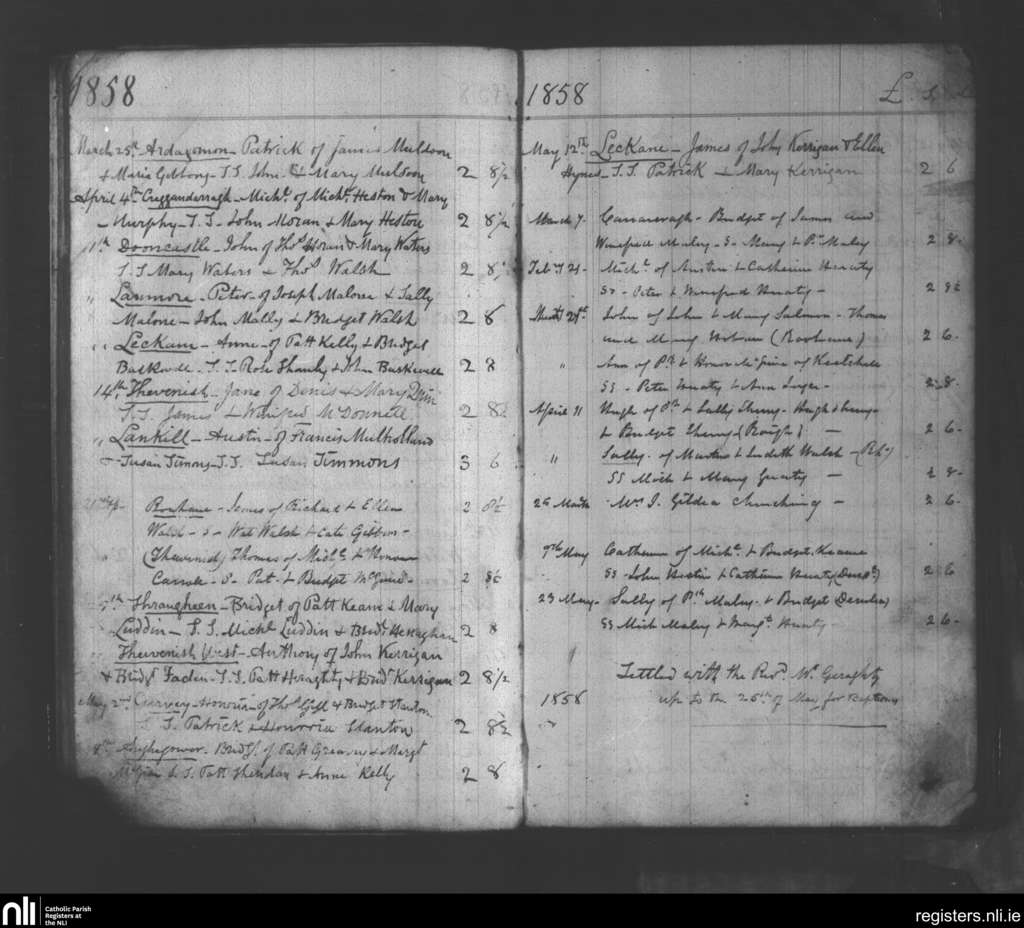 1858
March 25th Ardagomon - Patrick of James Muldoon
& Maria Gibbons - S.S. John & Mary Muldoon 2 8½
April 4th Cregganderragh - Michl. of Michl. Heston & Mary
Murphy - S.S. - John Moran & Mary Heston 2 8½
11th Dooncastle - John of Thos. Horan & Mary Waters
S.S Mary Waters & Thos. Walsh 2 8½
" Lanmore - Peter - of Joseph Malone & Sally
Malone - John Mally & Bridget Walsh 2 8
" Leckane - Anne - of Patt Kelly & Bridget
S.S. Rose & John 2 8
14th Thevenish - Jane of Denis & Mary
S.S. James & Winifred McDonnell 2 8½
" Lankill - Austin - of Francis Mulholland
& Susan Timons - S.S. Susan Timmons 3 6
- James of Richard & Ellen 2 8½
Walsh - s - Wat Walsh & Cate Gibbon -
" (Thevenish) Thomas of Michl. & Honour
- S - Pat. & Bridget McGuire - 2 8½
Thraugheen - Bridget of Patt Keane & Mary
Luddin - S.S. Michl. Luddin & Bridt. Heraghan 2 8
Thevenish West - Anthony of John Kerrigan
& Bridt. Faden - S.S. Patt Heraghty & Bridt. Kerrigan 2 8½
May 2nd Garvey - Honoria - of Thos. Gill & Bridget Stanton
S.S. Patrick & Honoria Stanton 2 8½
8th Aughagower - Bridgt. of Patt Greavy & Margt.
S.S. Patt Sheridan & Anne Kelly 2 8
1858 £ s
May 12th Leckane - James of John Kerrigan & Ellen
Hynes - S.S. Patrick & Mary Kerrigan 2 6
March 7 - Bridget of James and
Winefred Maley - S - Mary & Pat Maley 2 8
Feb. 21 - Michl. of Austin & Catherine Heraty
SS - Peter & Winefred Heraty - 2 8½
March 28th John of John & Mary Salmon - Thomas
and Mary 2 6
" Ann of Pt. & Honor McGuire of
SS - Peter Heraty & Ann - 2 8
April 11 Hugh of Pt. & Sally - Hugh
& Bridget - 2 6
" Sally - of Martin & Judith Walsh -
SS Mich & Mary - 2 8
26 March Mrs J. Gildea churching - 2 6
9th May Catherine of Michl. & Bridget Keane
SS - John & Catherine Heraty 2 6
23 May - Sally of Pt. Maley & Bridget
SS Mich Maley & Margt. Heraty 2 6
Settled with the Revd. Mr. Geraghty
1858 up to the 25th of May for
nli
Catholic Parish
Registers at
the NLI
registers.nli.ie